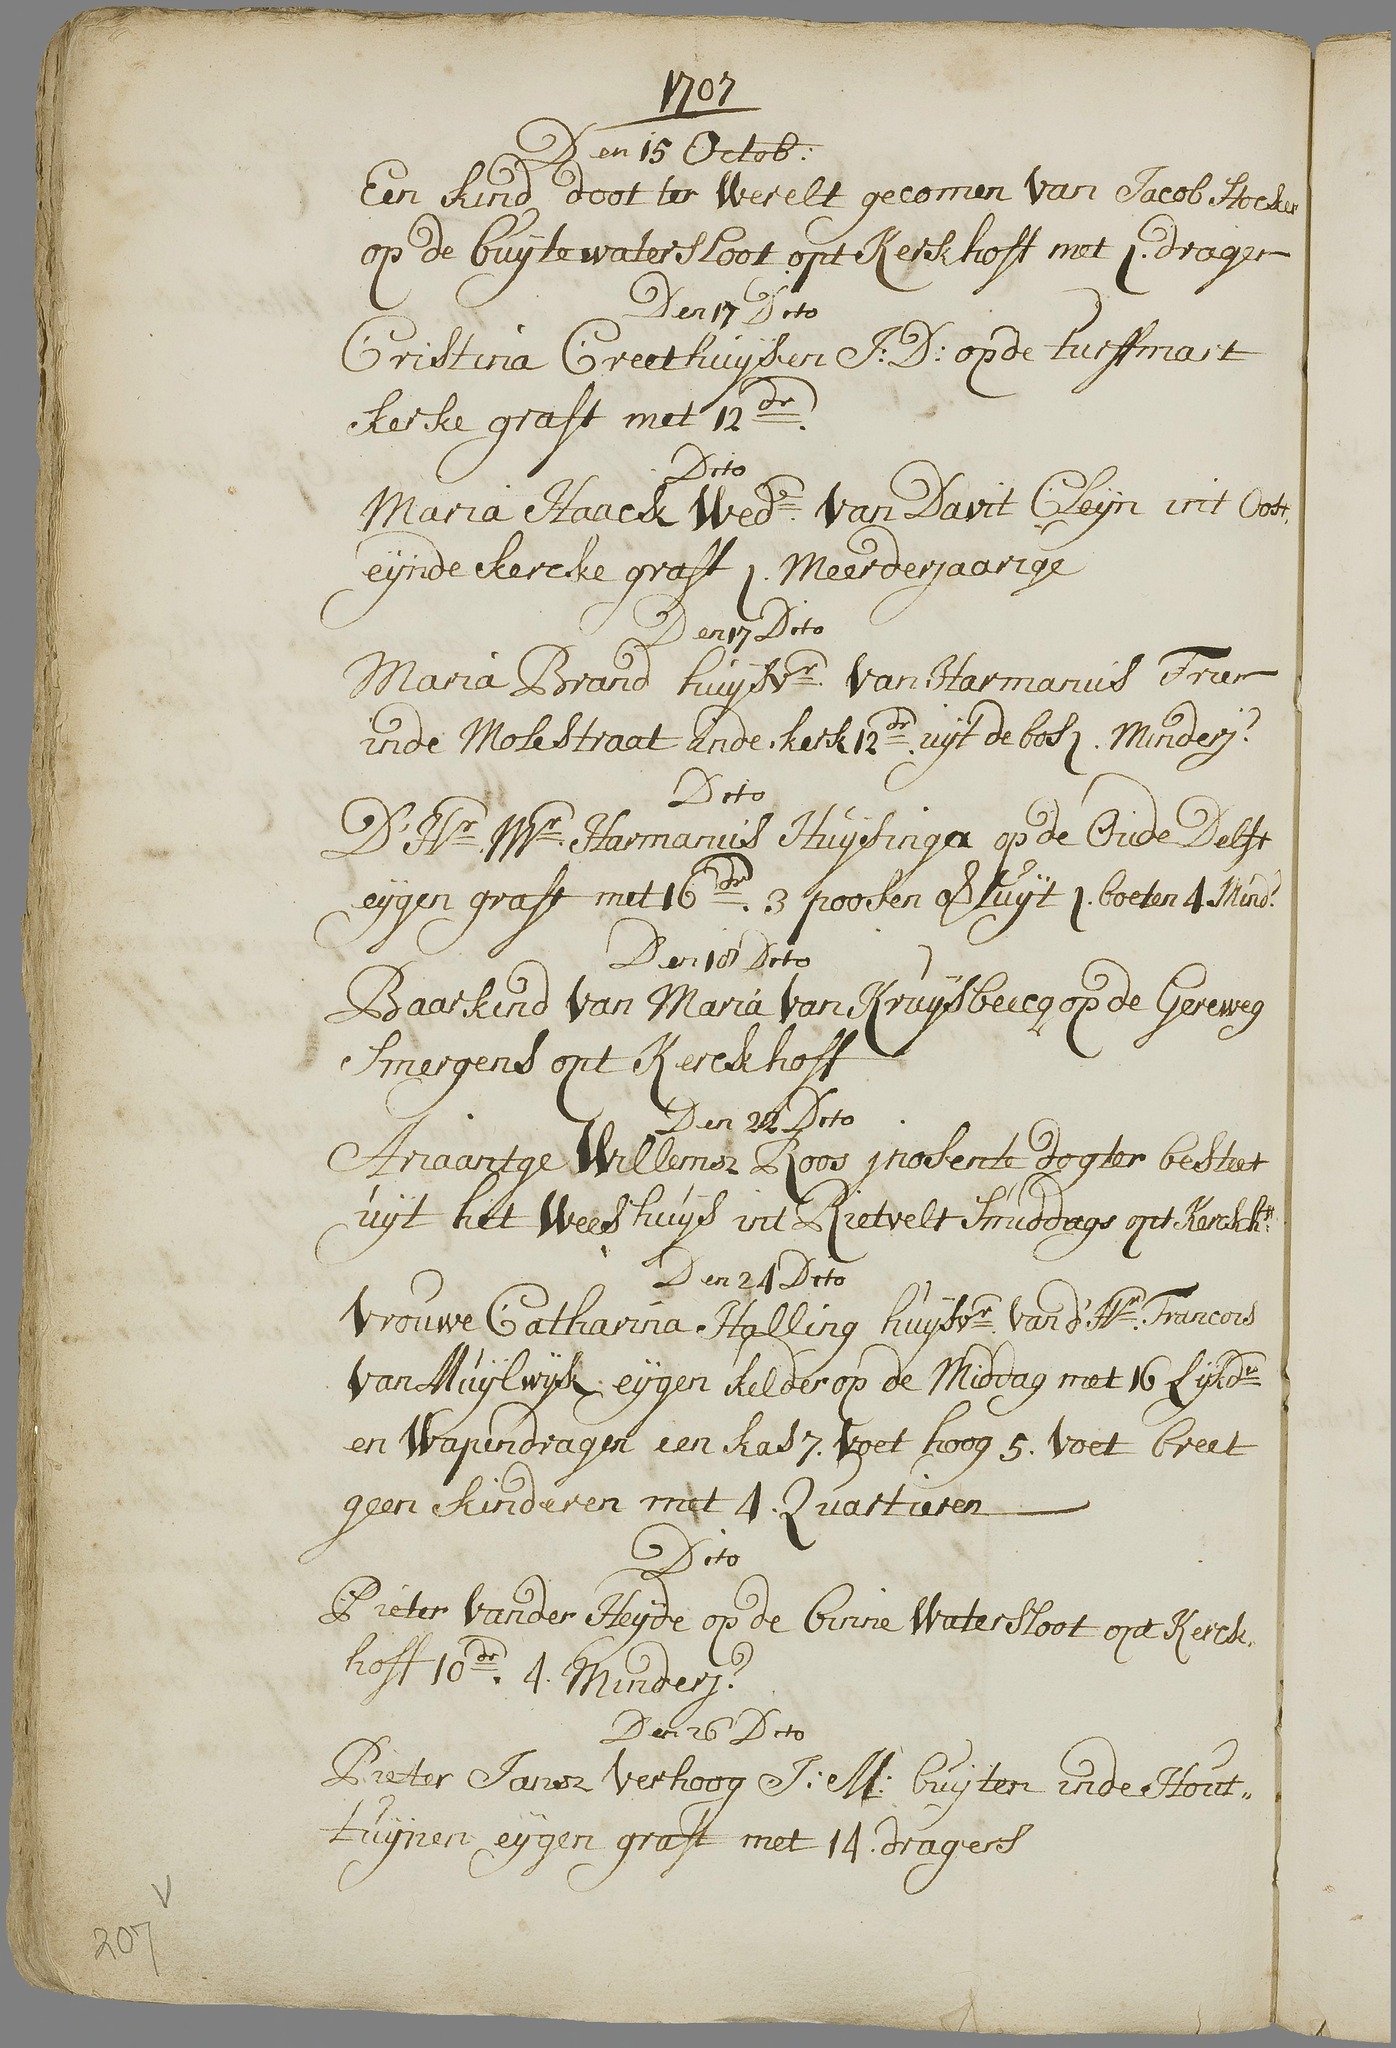 1707
Den 15 Octob:
Een kind doot ter Werelt gecomen van Jacob Stocker
op de buyte watersloot opt Kerkhoff met 1. drager
Den 17 Dito
Cristina Greethuijsen J: D: op de turffmart
kerke graft met 12 dr.
Dito
Maria Haack Wede. van Davit Cleyn int Oost,
eynde kercke graft 1. Meerderjaarige
Den 17 Dito
Maria Brand huysvr. van Harmanus Frier
inde Molestraat inde kerk 12 dr. uyt de bos 1. Minderj?
Dito
D' Hr. Mr. Harmanus Huysinga op de Oude Delft
eygen graft met 16 dr. 3 poosen geluyt 1. boeten 4. Mind?
Den 18 Dito
Baarkind van Maria van Kruysbeecq op de Gereweg
Smergens opt Kerckhoff
Den 22 Dito
Ariaantge Willemsz Roos jnosente dogter bestet
uyt het Weeshuys int Rietvelt Smiddags opt Kerckhff.
Den 24 Dito
Vrouwe Catharina Halling huysvr. van d' Hr. Francois
van Muylwyk eygen kelder op de Middag met 16 Lykdrs
en Wapendragen een kas 7. voet hoog 5. voet breet
geen kinderen met 4. Quartieren
Dito
Pieter vander Heyde op de binne Watersloot opt Kerck,
hoff 10 dr. 4. Minderj?
Den 26 Dito
Pieter Jansz verhoog J: M: buyten inde Hout,,
tuynen eygen graft met 14. dragers
V
207